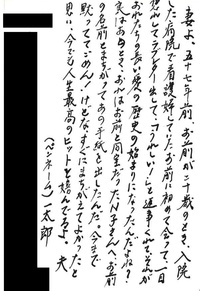 妻よ、五十七年前、お前が二十歳のとき、入院
した病院で看護婦してたお前に初めて会って一日
惚れしてラブレター出して、「うれしい!」と返事くれて、それが
おれたちの長い愛の歴史の始まりになったんだよね?
実はあのとき、おれはお前と同室だったM子さんへ、お前
の名前とまちがってあの手紙を出したんだ。今まで
黙っててごめん!けどな、すぐにまちがえてよかったと
思い、今でも人生最高のヒットと悟んでるよ。夫
(ペンネーム)一太郎